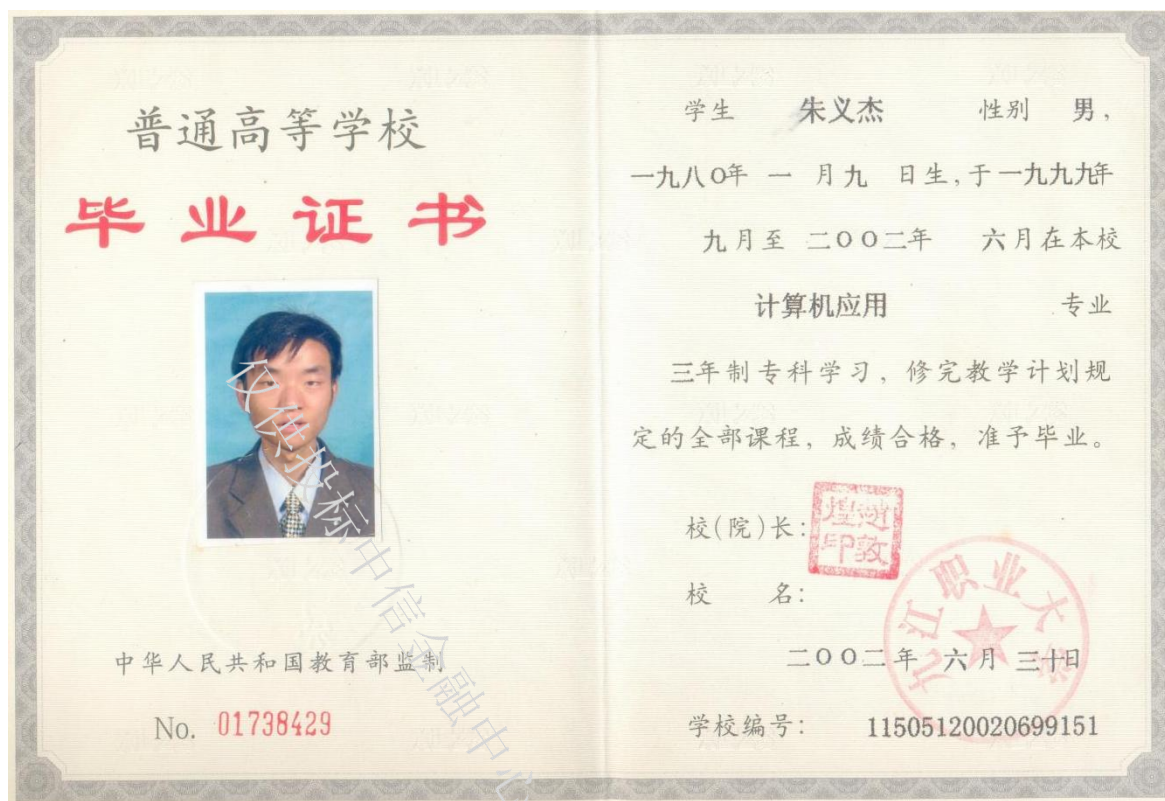 普通高等学校
毕业证书
仅供投标中信金融中心
中华人民共和国教育部监制
No. 01738429
学生 朱义杰 性别 男，
一九八〇年 一 月九 日生，于一九九九年
九月至 二〇〇二年 六月在本校
计算机应用 专业
三年制专科学习，修完教学计划规
定的全部课程，成绩合格，准予毕业。
校(院)长：
校 名：
九江职业大学
二〇〇二年 六月 三十日
学校编号： 11505120020699151